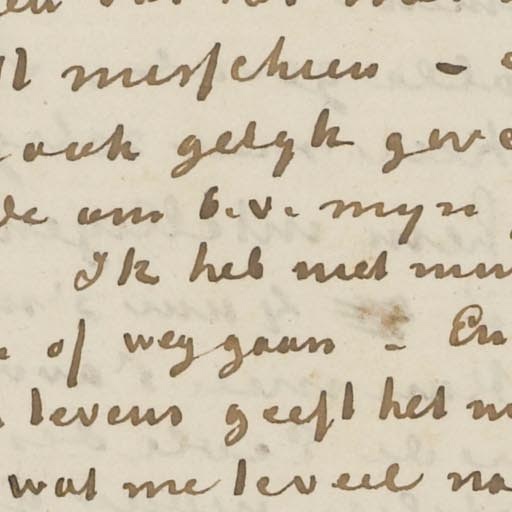 misschien -
ook gelyk geve
de om b.v. myn
Ik heb met mu
of weggaan - En
levens geeft het m
wat me teveel na